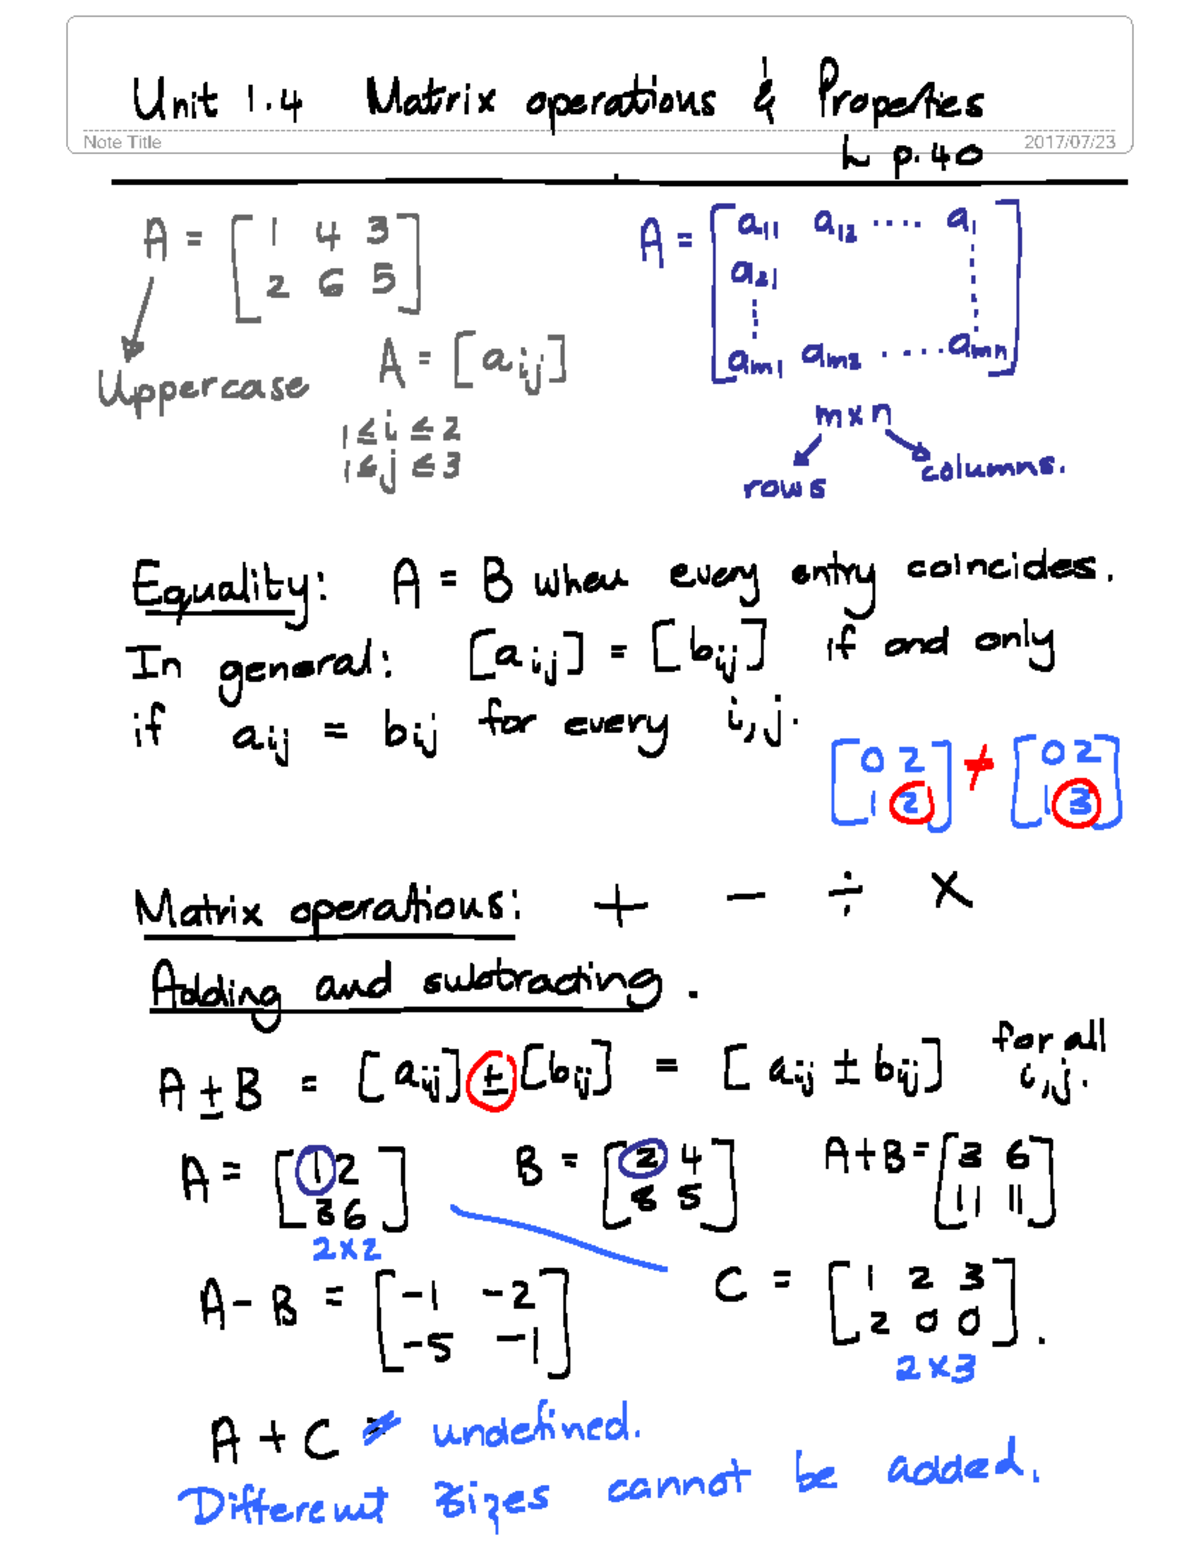 Unit 1.4 Matrix operations & Properties
Note Title 2017/07/23
L p.40
A = [1 4 3
2 6 5]
Uppercase
A = [aij]
1 ≤ i ≤ 2
1 ≤ j ≤ 3
A = [a11 a12 .... a1
a21
am1 am2 .... amn]
m x n
rows columns.
Equality: A = B when every entry coincides.
In general: [aij] = [bij] if and only
if aij = bij for every i,j.
[0 2 ≠ [0 2
1 2] 1 3]
Matrix operations: + − ÷ ×
Adding and subtracting.
A ± B = [aij] ± [bij] = [aij ± bij] for all
i,j.
A = [1 2 B = [2 4 A+B = [3 6
3 6] 8 5] 11 11]
2x2
A − B = [-1 -2 C = [1 2 3
-5 -1] 2 0 0].
2x3
A + C ≠ undefined.
Different sizes cannot be added.